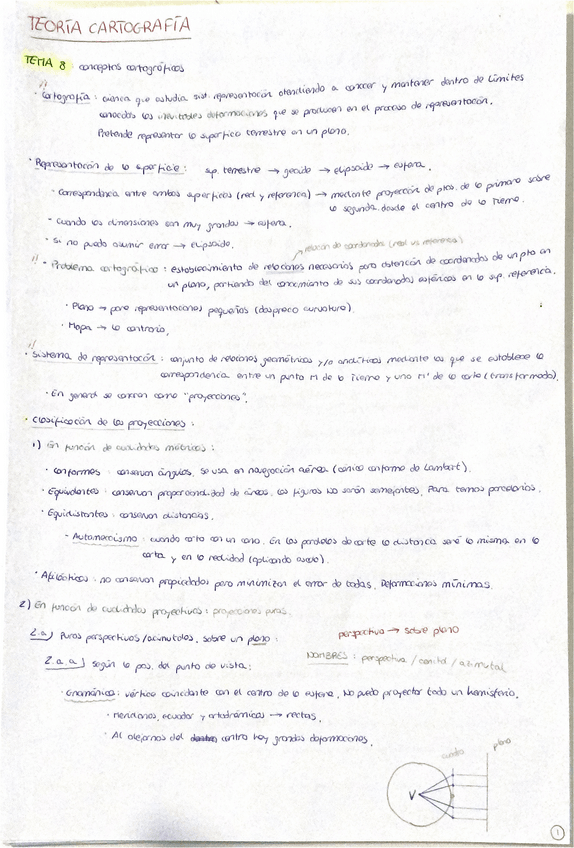 TEORÍA CARTOGRAFÍA
TEMA 8 : conceptos cartográficos
· Cartografía : ciencia que estudia sist. representación atendiendo a conocer y mantener dentro de límites
conocidos las inevitables deformaciones que se producen en el proceso de representación.
Pretende representar la superficie terrestre en un plano.
· Representación de la superficie : sup. terrestre → geoide → elipsoide → esfera.
· Correspondencia entre ambas superficies (real y referencia) → mediante proyección de ptos. de la primera sobre
la segunda desde el centro de la Tierra.
· Cuando las dimensiones son muy grandes → esfera.
· Si no puedo asumir error → elipsoide.
relación de coordenadas (real vs referencia)
· Problema cartográfico : establecimiento de relaciones necesarias para obtención de coordenadas de un pto en
un plano, partiendo del conocimiento de sus coordenadas esféricas en la sup. referencia.
· Plano → para representaciones pequeñas (desprecio curvatura).
· Mapa → lo contrario.
· Sistema de representación : conjunto de relaciones geométricas y/o analíticas mediante las que se establece la
correspondencia entre un punto M de la Tierra y uno M' de la carta (transformado).
· En general se conocen como "proyecciones".
· Clasificación de las proyecciones :
1) En función de cualidades métricas :
· Conformes : conservan ángulos. Se usa en navegación aérea (cónica conforme de Lambert).
· Equivalentes : conservan proporcionalidad de áreas. Las figuras NO serán semejantes. Para temas parcelarios.
· Equidistantes : conservan distancias.
- Automecoismo : cuando corto con un cono. En los paralelos de corte la distancia será la misma en la
carta y en la realidad (aplicando escala).
· Afilácticas : no conservan propiedades para minimizar el error de todas. Deformaciones mínimas.
2) En función de cualidades proyectivas : proyecciones puras.
2.a) Puras perspectivas/acimutales, sobre un plano : perspectiva → sobre plano
NOMBRES : perspectiva / cenital / azimutal
2.a.a) según la pos. del punto de vista :
· Gnomónica : vértice coincidente con el centro de la esfera. No puedo proyectar todo un hemisferio.
· Meridianos, ecuador y ortodrómicas → rectas.
· Al alejarnos del centro hay grandes deformaciones.
plano
V
1